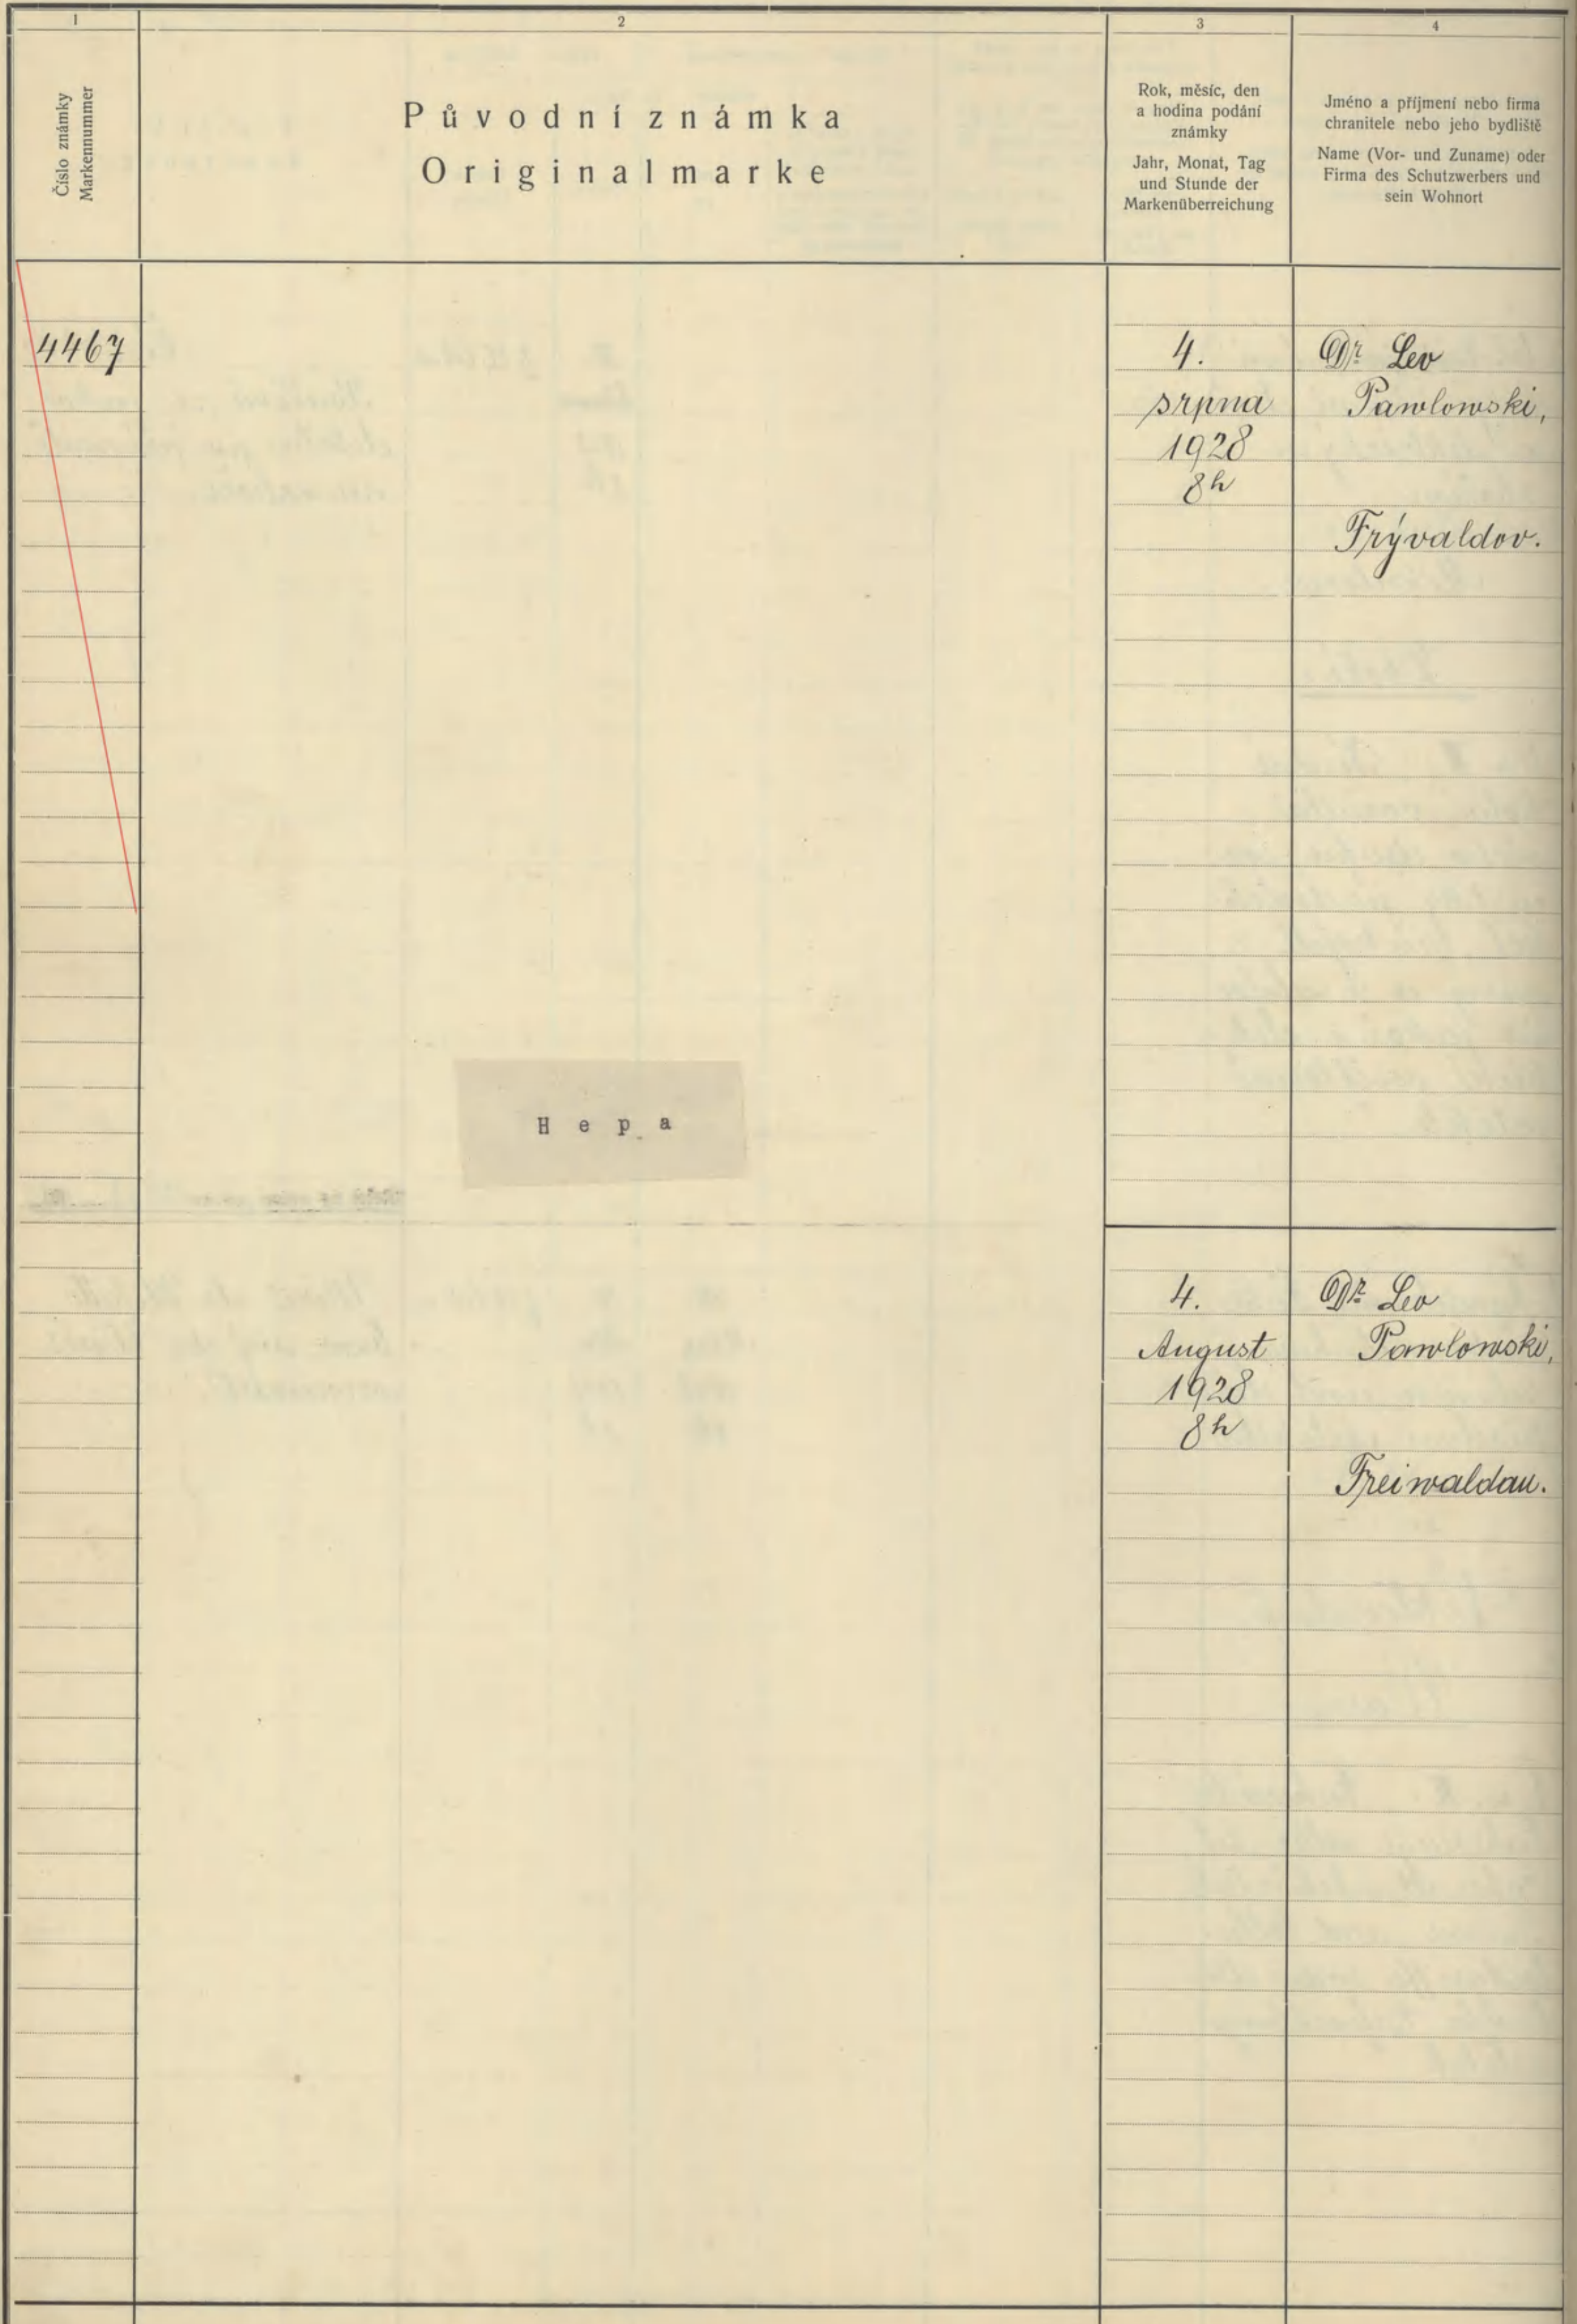 1
2
3
4
Číslo známky
Markennummer
Původní známka
Originalmarke
Rok, měsíc, den
a hodina podání
známky
Jahr, Monat, Tag
und Stunde der
Markenüberreichung
Jméno a příjmení nebo firma
chranitele nebo jeho bydliště
Name (Vor- und Zuname) oder
Firma des Schutzwerbers und
sein Wohnort
4467
4.
srpna
1928
8h
Dr. Leo
Pawlowski,
Frývaldov.
Hepa
4.
August
1928
8h
Dr. Leo
Pawlowski,
Freiwaldau.